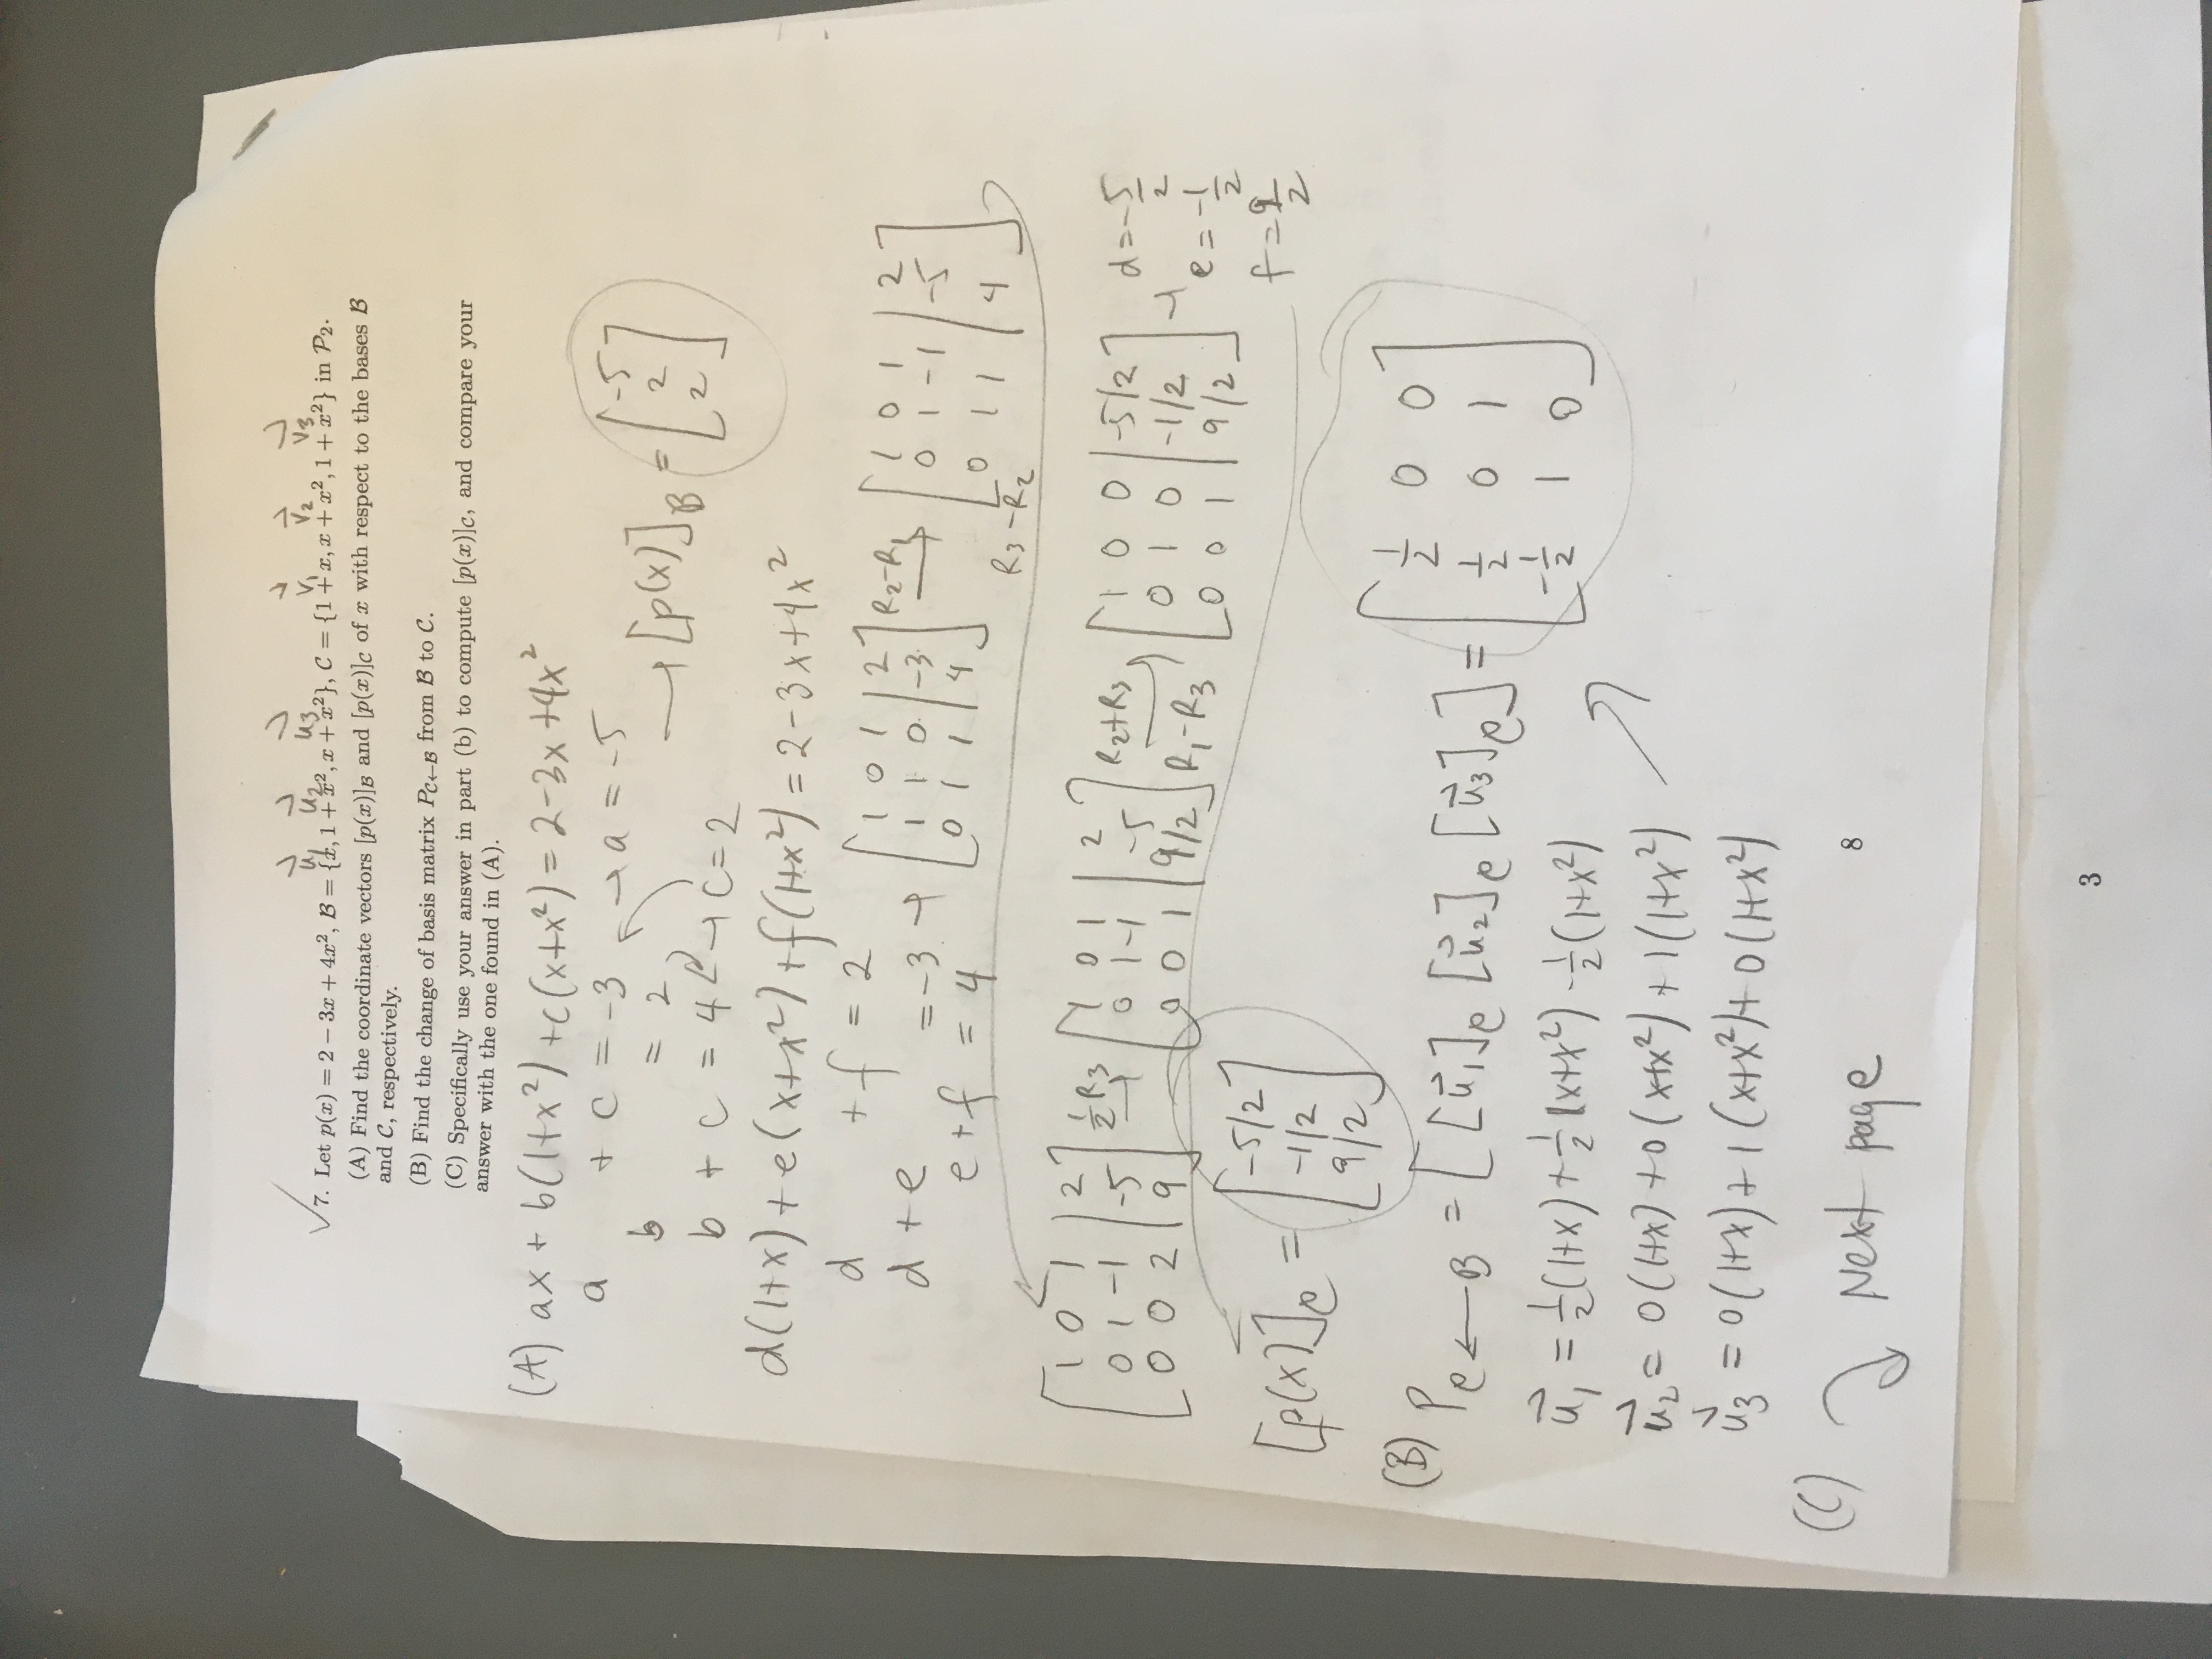 u⃗1 u⃗2 u⃗3 v⃗1 v⃗2 v⃗3
✓7. Let p(x) = 2 − 3x + 4x², B = {x, 1 + x², x + x²}, C = {1 + x, x + x², 1 + x²} in P₂.
(A) Find the coordinate vectors [p(x)]B and [p(x)]C of x with respect to the bases B
and C, respectively.
(B) Find the change of basis matrix PC←B from B to C.
(C) Specifically use your answer in part (b) to compute [p(x)]C, and compare your
answer with the one found in (A).
(A) ax + b(1+x²) + c(x+x²) = 2-3x+4x²
a + c = -3 → a = -5
b = 2
b + c = 4 → c = 2
→ [p(x)]B = [-5 2 2]
d(1+x) + e(x+x²) + f(1+x²) = 2-3x+4x²
d + f = 2
d + e = -3 →
e + f = 4
[1 0 1 | 2
1 1 0 | -3
0 1 1 | 4]
R2-R1 →
[1 0 1 | 2
0 1 -1 | -5
0 1 1 | 4]
R3-R2
[1 0 1 | 2
0 1 -1 | -5
0 0 2 | 9]
½R3 →
[1 0 1 | 2
0 1 -1 | -5
0 0 1 | 9/2]
R2+R3 →
R1-R3
[1 0 0 | -5/2
0 1 0 | -1/2
0 0 1 | 9/2]
→ d = -5/2
e = -1/2
f = 9/2
[p(x)]C = [-5/2 -1/2 9/2]
(B) PC←B = [[u⃗1]C [u⃗2]C [u⃗3]C] =
[½ 0 0
½ 0 1
-½ 1 0]
u⃗1 = ½(1+x) + ½(x+x²) - ½(1+x²)
u⃗2 = 0(1+x) + 0(x+x²) + 1(1+x²)
u⃗3 = 0(1+x) + 1(x+x²) + 0(1+x²)
(C) Next page
8
3